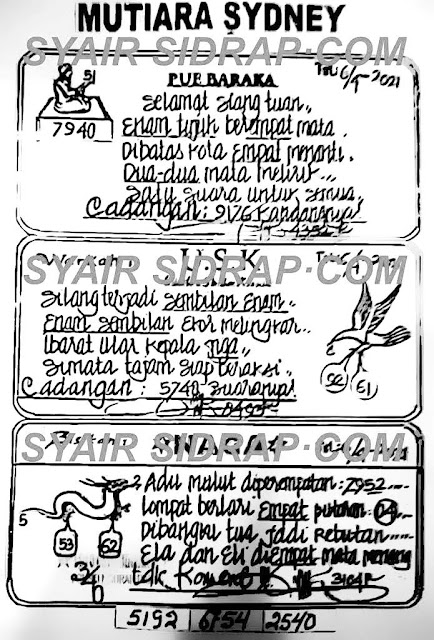 MUTIARA SYDNEY
SYAIR SIDRAP.COM
PUE BARAKA
51
7940
Selamat siang tuan,,
Enam tujuh berempat mata.
Dibatas kota empat menanti.
Dua-dua mata melirik...
Satu suara untuk semua.
Cadangan: 9176
SYAIR SIDRAP.COM
U S K
Silang terjadi sembilan enam..
Enam sembilan ekor melingkar..
Ibarat ular kepala tiga
Simata tajam siap beraksi..
52
Cadangan: 5748
SYAIR SIDRAP.COM
Adu mulut diperempatan: 7952....
lompat berlari Empat putaran 04
5
Dibangku tua jadi rebutan.....
53 52
Ela dan Eli diempat mata
tdk
3/0
5192 6754 2540